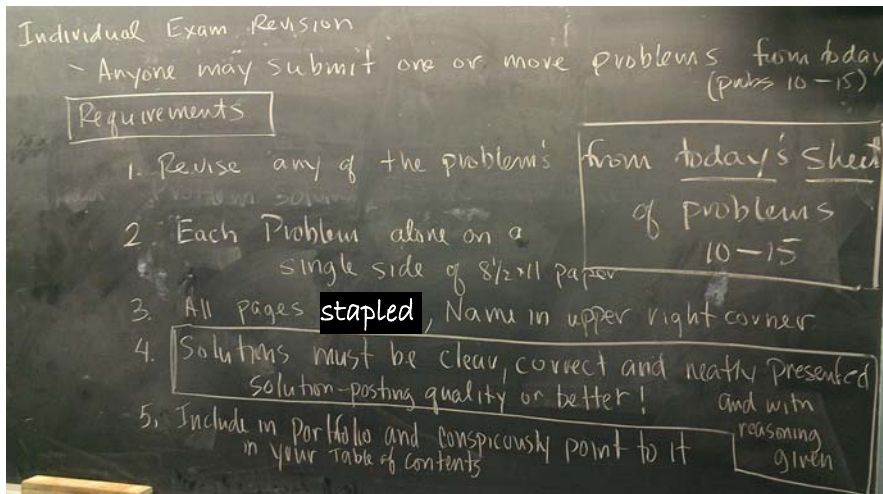 Individual Exam Revision
~ Anyone may submit one or more problems from today
(probs 10-15)
Requirements
1. Revise any of the problem's
from today's sheet
of problems
10-15
2. Each Problem alone on a
single side of 8½x11 paper
3. All pages stapled, Name in upper right corner.
4. Solutions must be clear, correct and neatly presented
solution-posting quality or better!
and with
reasoning
given
5. Include in portfolio and conspicously point to it
in your Table of Contents